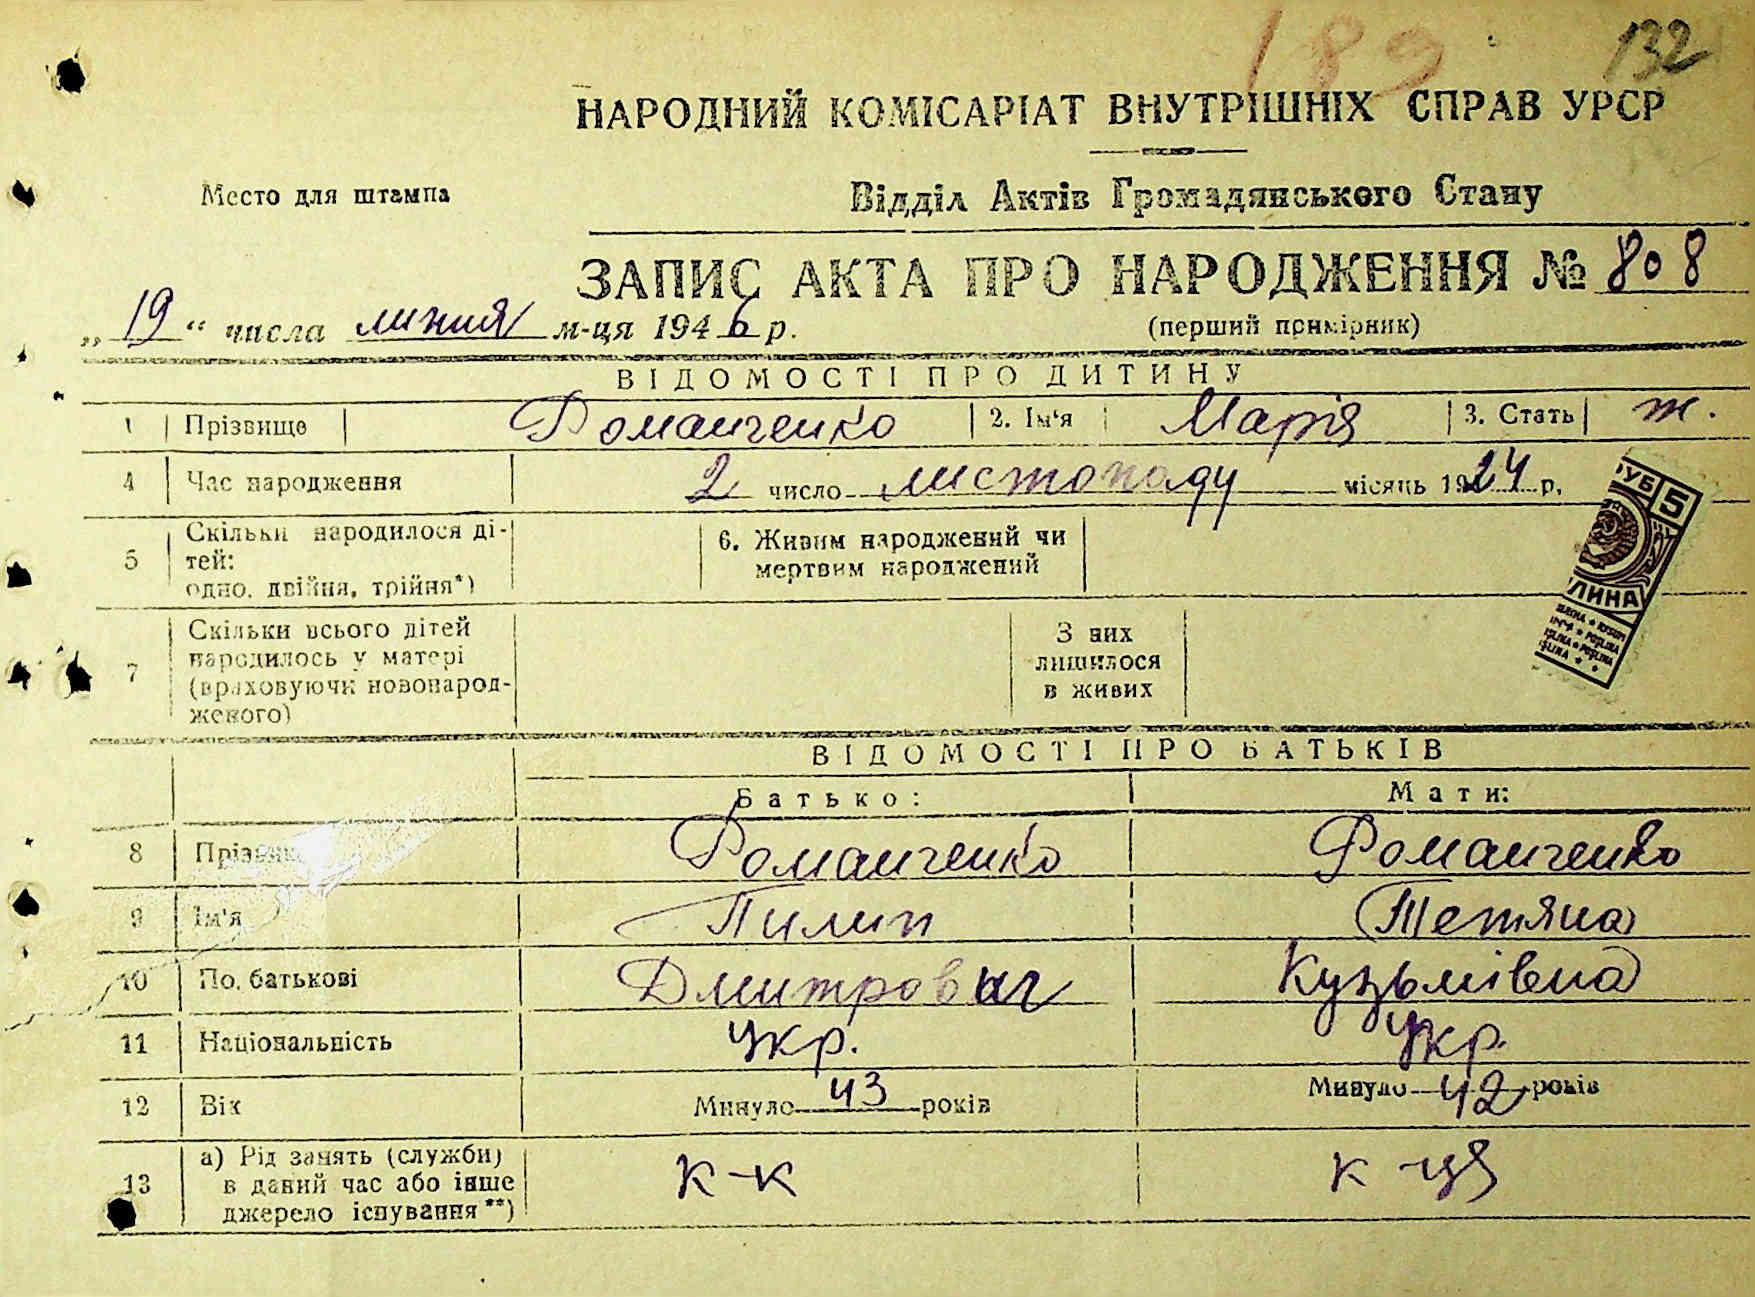 189 132
НАРОДНИЙ КОМІСАРІАТ ВНУТРІШНІХ СПРАВ УРСР
Место для штампа
Відділ Актів Громадянського Стану
ЗАПИС АКТА ПРО НАРОДЖЕННЯ № 808
„19“ числа липня м-ця 1946 р.
(перший примірник)
ВІДОМОСТІ ПРО ДИТИНУ
1 Прізвище Романченко 2. Ім'я Марія 3. Стать ж.
4 Час народження 2 число листопаду місяць 1924 р.
5 Скільки народилося ді-
тей:
одно, двійня, трійня*)
6. Живим народжений чи
мертвим народжений
РУБ 5
ЛИНА
7 Скільки всього дітей
народилось у матері
(враховуючи новонарод-
женого)
З них
лишилося
в живих
ВІДОМОСТІ ПРО БАТЬКІВ
Батько: Мати:
8 Прізвище Романченко Романченко
9 Ім'я Пилип Тетяна
10 По батькові Дмитрович Кузьмівна
11 Національність укр. укр.
12 Вік Минуло 43 років Минуло 42 років
13 а) Рід занять (служби)
в даний час або інше
джерело існування**)
к-к к-ця